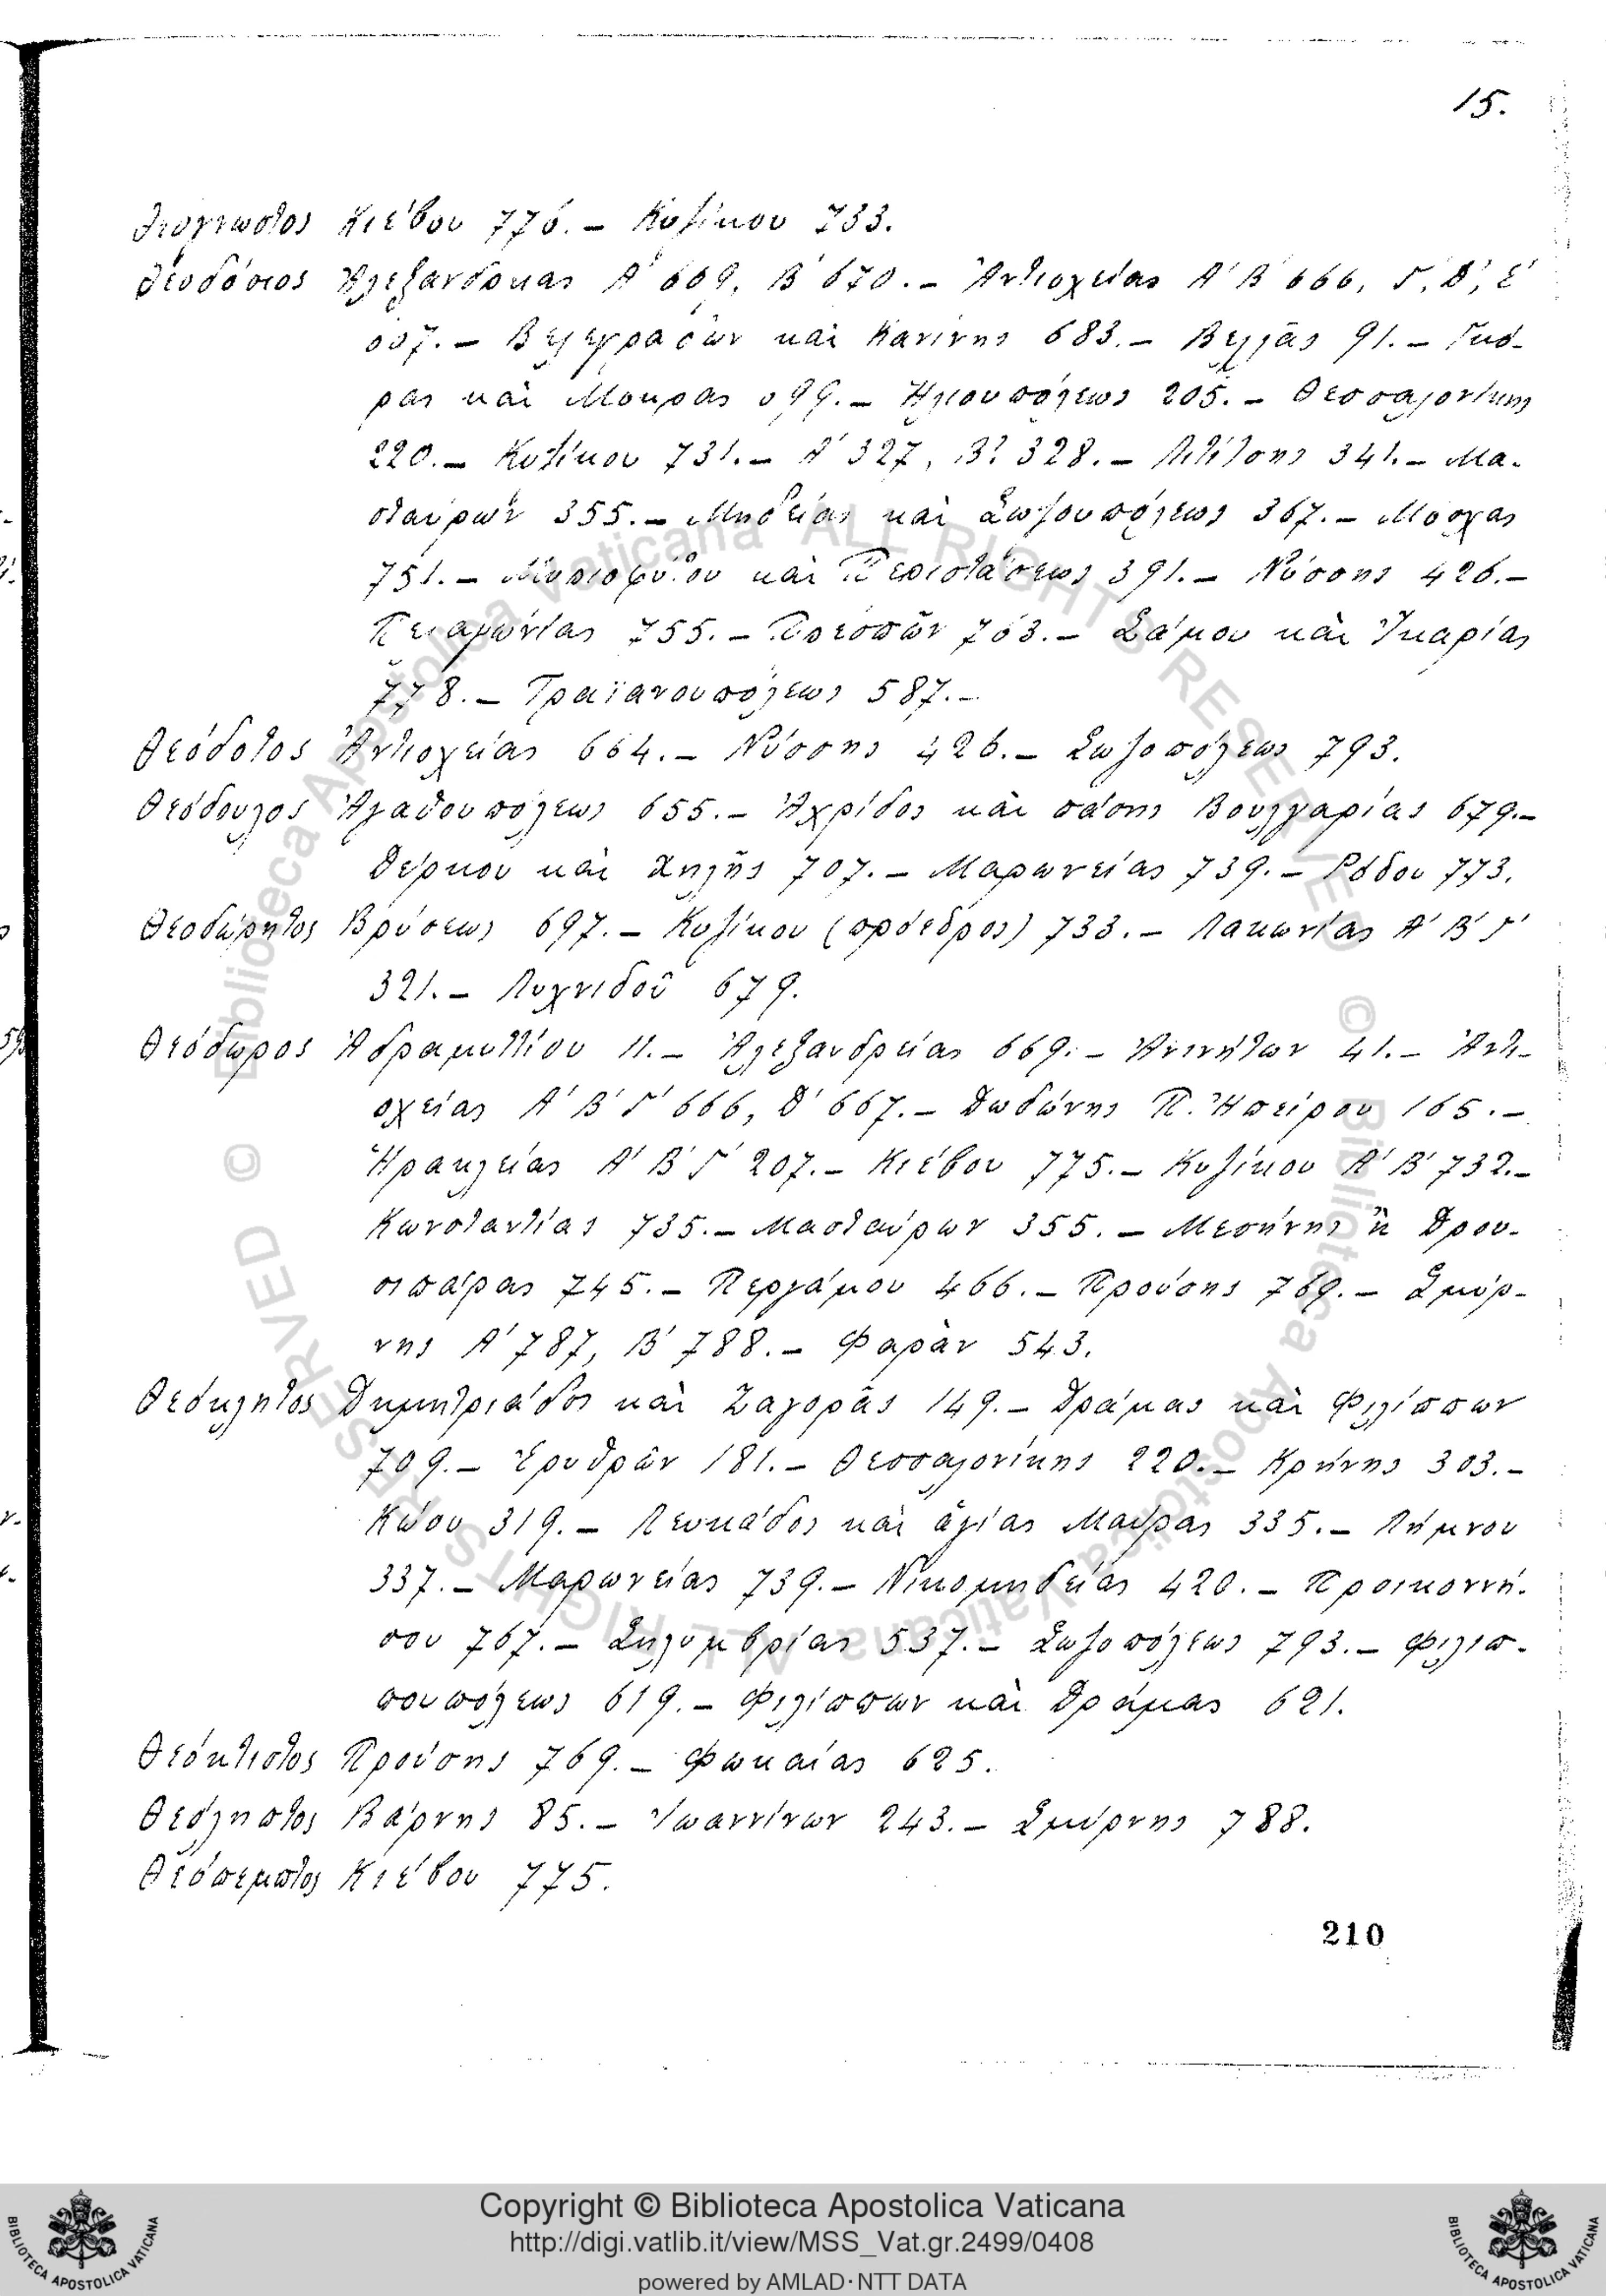 15.
Θεόγνωστος Κιέβου 776. – Κυζίκου 733.
Θεοδόσιος Ἀλεξανδρείας Α΄ 669, Β΄ 670. – Ἀντιοχείας Α΄ Β΄ 666, Γ΄, Δ΄, Ε΄
667. – Βελεγράδων καὶ Κανίνης 683. – Βελλᾶς 91. –
ρας καὶ Μουρας 699. – Ἡλιουπόλεως 205. – Θεσσαλονίκης
220. – Κυζίκου 731. – Α΄ 327, Β΄ 328. – Λιτίτσης 341. – Μα-
σταύρων 355. – Μηδείας καὶ Σωζουπόλεως 367. – Μόσχας
751. – Μυριοφύτου καὶ Περιστάσεως 391. – Νύσσης 426. –
755. – Πρεσπῶν 763. – Σάμου καὶ Ἰκαρίας
778. – Τραϊανουπόλεως 587. –
Θεόδοτος Ἀντιοχείας 664. – Νύσσης 426. – Σωζοπόλεως 793.
Θεόδουλος Ἀγαθουπόλεως 655. – Ἀχρίδος καὶ πάσης Βουλγαρίας 679. –
Δέρκου καὶ Χηλῆς 707. – Μαρωνείας 739. – Ρόδου 773.
Θεοδώρητος Βρύσεως 697. – Κυζίκου (πρόεδρος) 733. – Λακωνίας Α΄ Β΄ Γ΄
321. – Λυχνιδοῦ 679.
Θεόδωρος Ἀδραμυττίου 11. – Ἀλεξανδρείας 669. – Ἀνινήτων 41. – Ἀντι-
οχείας Α΄ Β΄ Γ΄ 666, Δ΄ 667. – Δωδώνης Π. Ἠπείρου 165. –
Ἡρακλείας Α΄ Β΄ Γ΄ 207. – Κιέβου 775. – Κυζίκου Α΄ Β΄ 732. –
Κωνσταντίας 735. – Μασταύρων 355. – Μεσήνης ἢ Δρου-
σιπάρας 745. – Περγάμου 466. – Προύσης 769. – Σμύρ-
νης Α΄ 787, Β΄ 788. – Φαρὰν 543.
Θεόκλητος Δημητριάδος καὶ Ζαγορᾶς 149. – Δράμας καὶ Φιλίππων
709. – Ἐρυθρῶν 181. – Θεσσαλονίκης 220. – Κρήνης 303. –
Κώου 319. – Λευκάδος καὶ ἁγίας Μαύρας 335. – Λήμνου
337. – Μαρωνείας 739. – Νικομηδείας 420. – Προικοννή-
σου 767. – Σηλυμβρίας 537. – Σωζοπόλεως 793. – Φιλιπ-
πουπόλεως 619. – Φιλίππων καὶ Δράμας 621.
Θεόκτιστος Προύσης 769. – Φωκαίας 625.
Θεόληπτος Βάρνης 85. – Ἰωαννίνων 243. – Σμύρνης 788.
Θεόπεμπτος Κιέβου 775.
210
Copyright © Biblioteca Apostolica Vaticana
http://digi.vatlib.it/view/MSS_Vat.gr.2499/0408
powered by AMLAD·NTT DATA